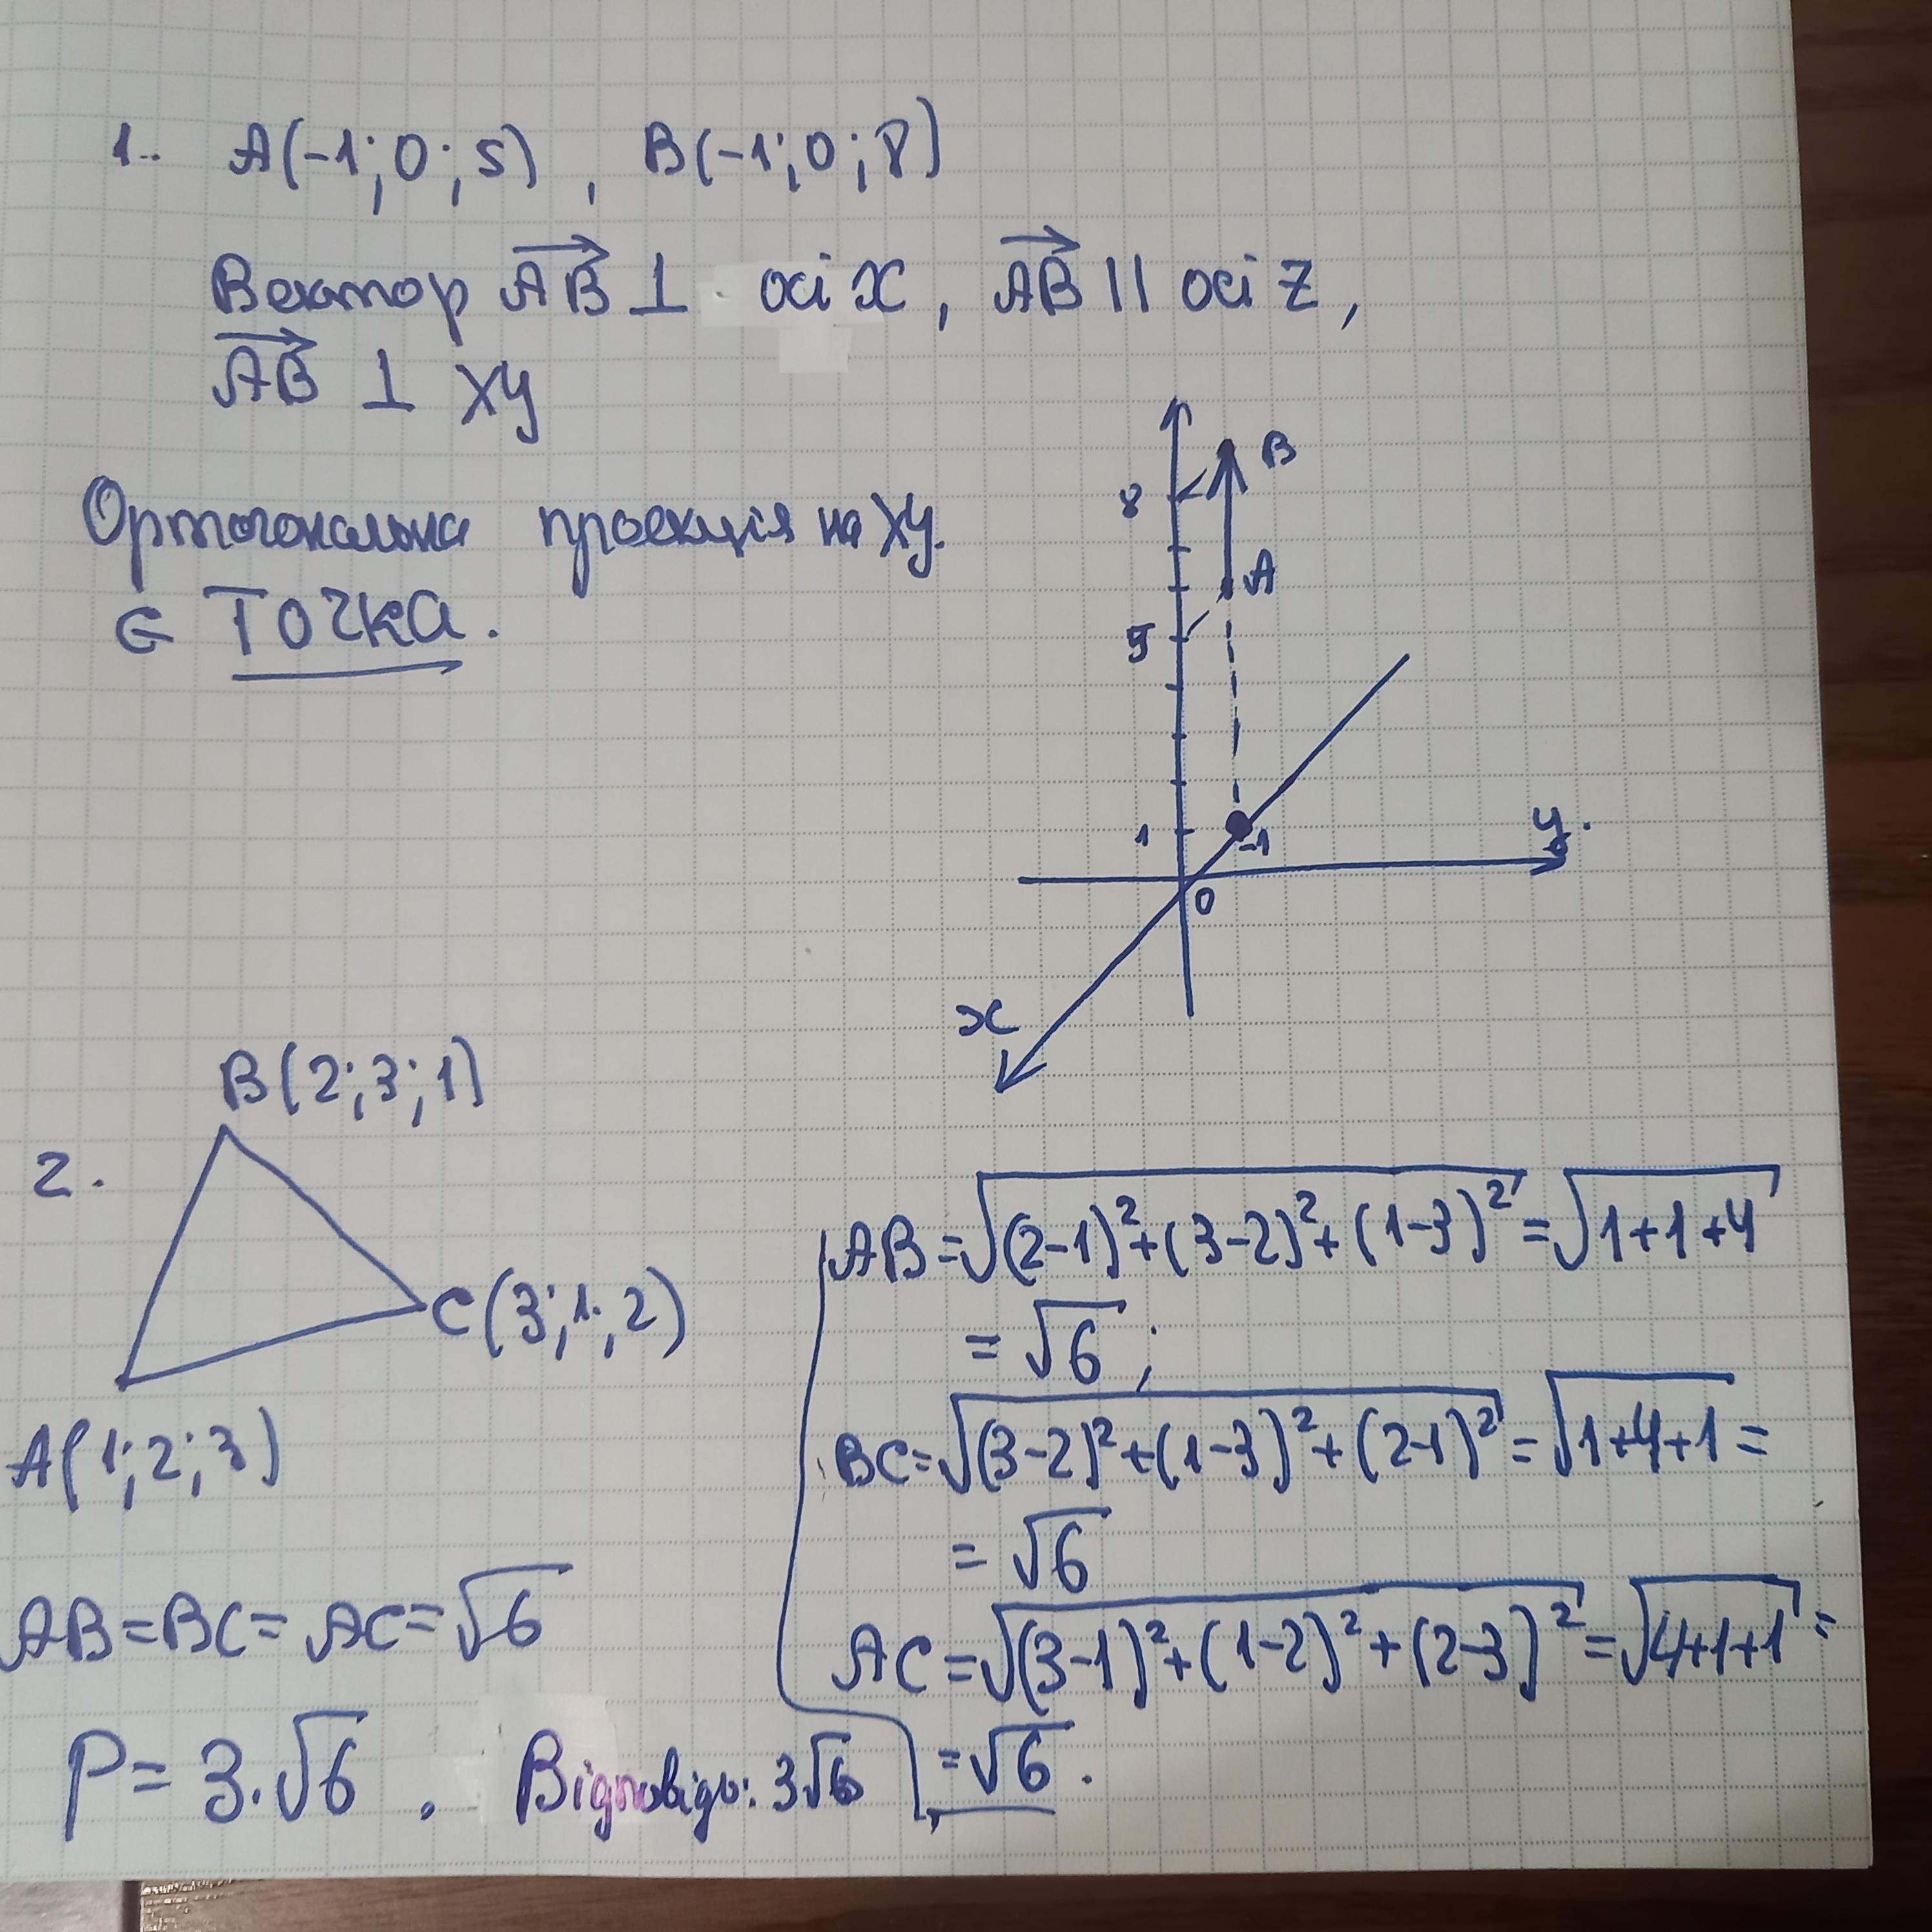 1. A(-1;0;5), B(-1;0;8)
Вектор AB ⊥ осі x, AB || осі z,
AB ⊥ xy
Ортогональна проекція на xy.
є точка.
B
8
A
5
1
-1
y.
0
x
2.
B(2;3;1)
C(3;1;2)
A(1;2;3)
AB=BC=AC=√6
P=3·√6. Відповідь: 3√6
AB=√((2-1)²+(3-2)²+(1-3)²)=√(1+1+4)
=√6;
BC=√((3-2)²+(1-3)²+(2-1)²)=√(1+4+1)=
=√6
AC=√((3-1)²+(1-2)²+(2-3)²)=√(4+1+1)=
=√6.